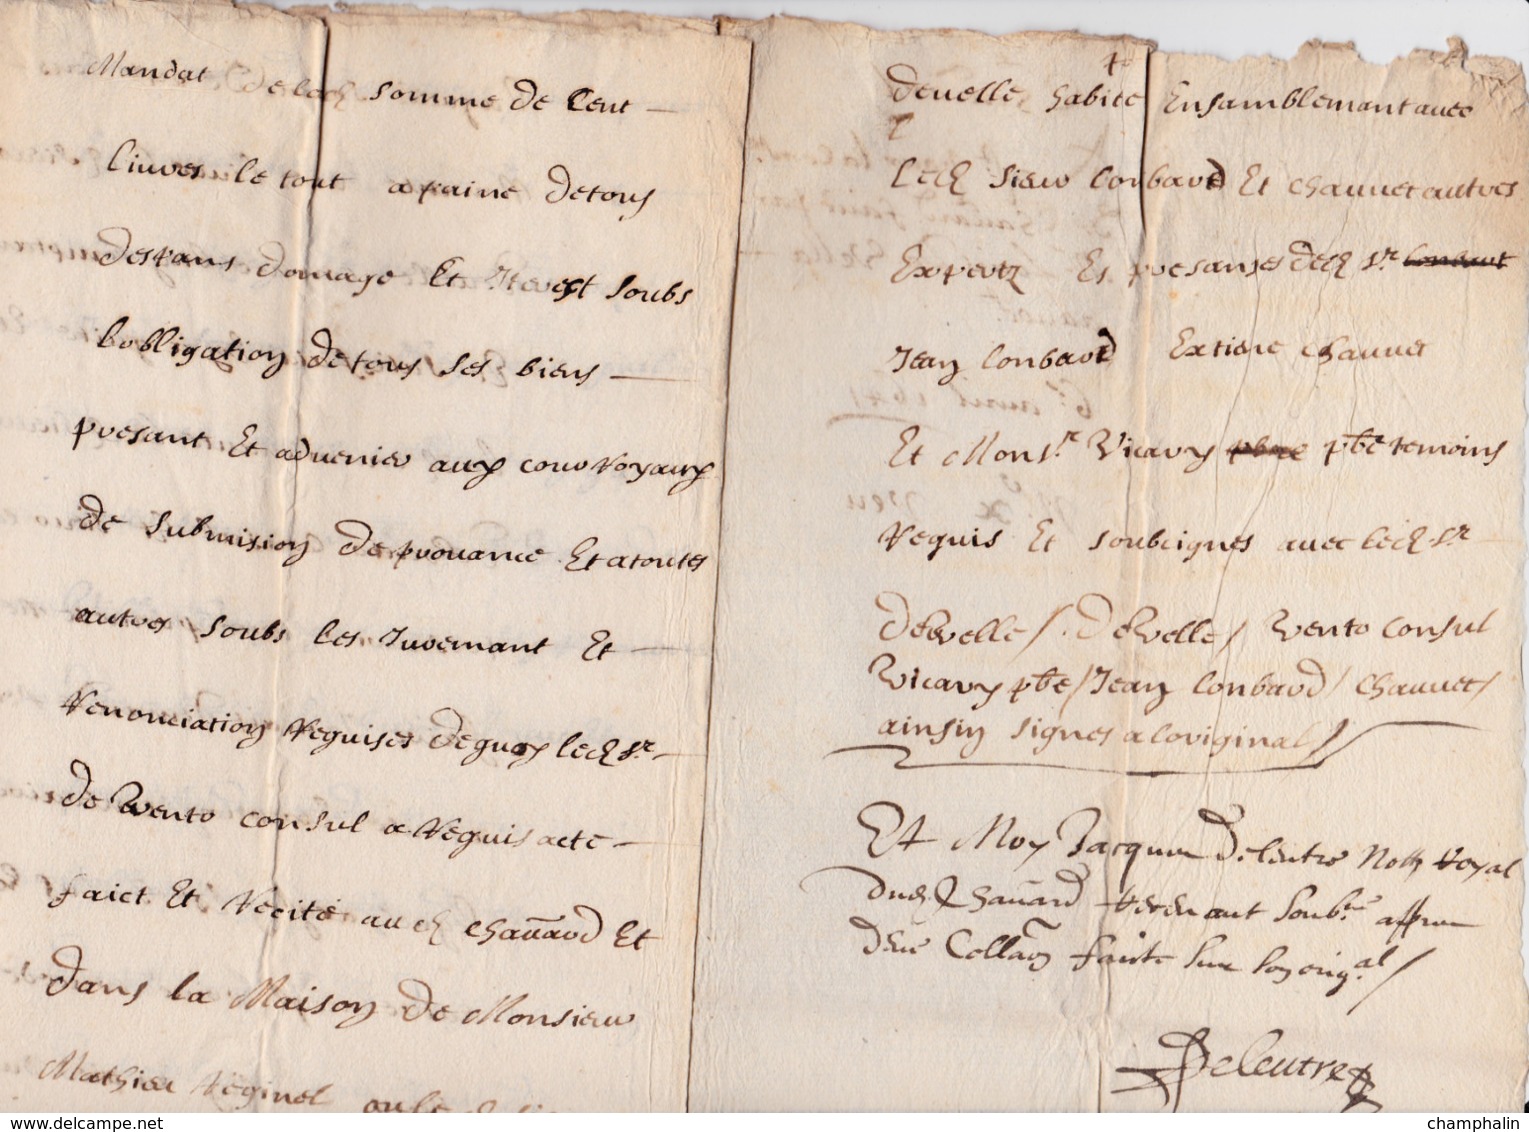 Mandat de lad somme de Cent
liures le tout a paine de tous
despans domage Et Interest soubs
lobligation de tous ses biens
presant Et aduenier aux cour Royaux
de submision de prouance Et a toutes
autres soubs les Juremant Et
Renonciation Requises de quoy led sr
de Vento consul a Requis acte
faict Et Recité aud chauard Et
dans la Maison de Monsieur
Mathieu Reginel
deuelle habite Ensamblemant auec
led sieur Conbard Et Chauuet autres
Expertz Es presanses dud sr Conbaut
Jean Conbard Extiene Chauuet
Et Monsr Vicary pbre pbre temoins
Requis Et soubsignes auec led sr
deVelle / deVelle / Vento consul
Vicary pbre / Jean Conbard / Chauuet /
ainsin signes a loriginal /
Et Moy Jacques Deleutre Nore Royal
dud Chauard soubne appres
deue Collaon faicte sur son origal /
Deleutre
delcampe.net
champhalin